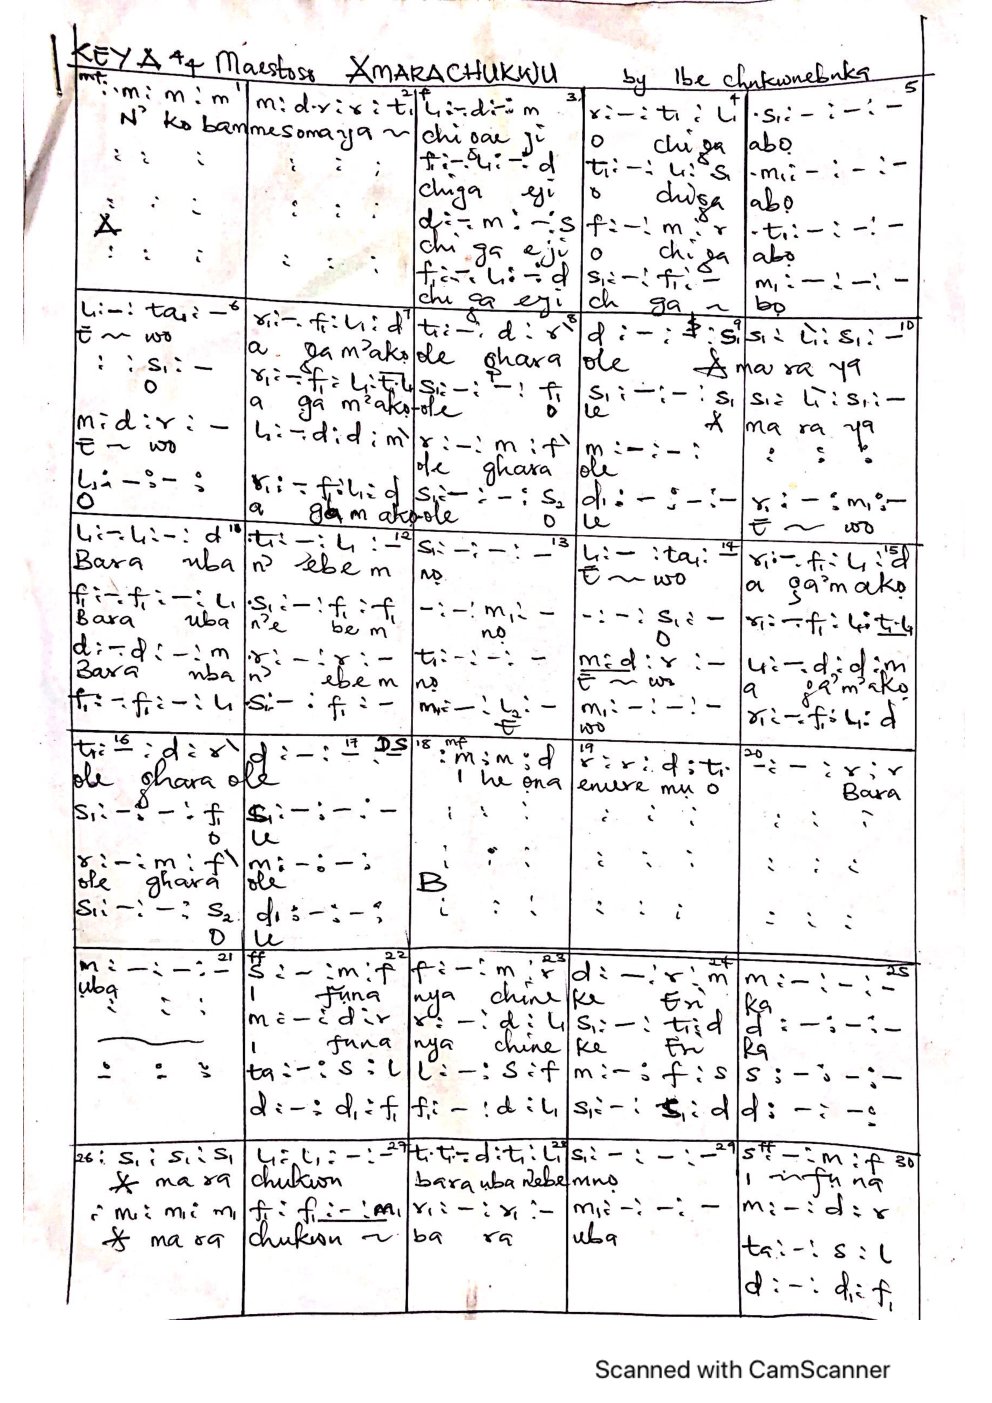 KEY A 4/4 Maestoso AMARACHUKWU by Ibe chukwuebuka
mf
: m : m : m | m : d . r : r : t₁ 2 | f l₁ : - : d : - : m 3 | r : - : t₁ : l₁ 4 | . s₁ : - : - : - 5
N' ko banmesomaya ~ chi ga e ji O chi ga abọ
f₁ : - : l₁ : - : d | t₁ : - : l₁ : s₁ | . m₁ : - : - : -
chiga eji o chiga abọ
d : - : m : - : s | f : - : m : r | . t₁ : - : - : -
A chi ga eji o chi ga abọ
f₁ : - : l₁ : - : d | s₁ : - : f₁ : - | m₁ : - : - : -
chi ga eyi ch ga ~ bọ
l₁ : - : ta₁ : - 6 | r₁ : - . f₁ : l₁ : d 7 | t₁ : - : d : r 8 | d : - : - : s₁ 9 | s₁ : l₁ : s₁ : - 10
E ~ wo a ga m'akọ ole ghara ole A ma ra ya
: : s₁ : - | r₁ : - . f₁ : l₁ : t₁ . l₁ | s₁ : - : - : f₁ | s₁ : - : - : s₁ | s₁ : l₁ : s₁ : -
O a ga m'ako ole o le A ma ra ya
m : d : r : - | l₁ : - . d : d : m | r : - : m : f | m : - : - :
E ~ wo ole ghara ole
l₁ : - : - : | r₁ : - . f₁ : l₁ : d | s₁ : - : - : s₂ | d₁ : - : - : - | r₁ : - : m₁ : -
O a ga m ako ole o le E ~ wo
l₁ : - . l₁ : - : d 11 | t₁ : - : l₁ : - 12 | s₁ : - : - : - 13 | l₁ : - : ta₁ : - 14 | r₁ : - . f₁ : l₁ : d 15
Bara uba n' ebe m nọ E ~ wo a ga'm akọ
f₁ : - . f₁ : - : l₁ | . s₁ : - : f₁ : f | - : - : m₁ : - | - : - : s₁ : - | r₁ : - . f₁ : l₁ : t₁ . l₁
Bara uba n'e be m nọ O
d : - . d : - : m | . r : - : r : - | t₁ : - : - : - | m . d : r : - | l₁ : - . d : d : m
Bara uba n' ebe m nọ E ~ wo a ga'm'akọ
f₁ : - . f₁ : - : l₁ | . s₁ : - : f₁ : - | m₁ : - : l₂ : - | m₁ : - : - : - | r₁ : - . f₁ : l₁ : d
E wo
t₁ : 16 - : d : r | d : - : - 17 : DS | 18 mf : m : m : d | 19 r : r : d : t₁ | 20 - : - : r : r
ole ghara ole I he ọna emere mu o Bara
s₁ : - : - : f₁ | s₁ : - : - : -
o le
r : - : m : f | m : - : - :
ole ghara ole B
s₁ : - : - : s₂ | d₁ : - : - :
O le
m : - : - : - 21 | ff s : - : m : f 22 | f : - : m : r 23 | d : - : r : m 24 | m : - : - : - 25
uba I funa nya chine ke Eri ka
m : - : d : r | r : - : d : l₁ | s₁ : - : t₁ : d | d : - : - : -
I funa nya chine ke Eri ka
ta : - : s : l | l : - : s : f | m : - : f : s | s : - : - : -
d : - : d₁ : f₁ | f₁ : - : d : l₁ | s₁ : - : s₁ : d | d : - : - :
26 : s₁ : s₁ : s₁ | l₁ : l₁ : - : - 27 | t₁ . t₁ : - . d : t₁ : l₁ 28 | s₁ : - : - : - 29 | ff s : - : m : f 30
A ma ra chukwu bara uba nebe mnọ I ~ fu na
: m₁ : m₁ : m₁ | f₁ : f₁ : - : m₁ | r₁ : - : r₁ : - | m₁ : - : - : - | m : - : d : r
A ma ra chukwu ~ ba ra uba
ta : - : s : l
d : - : d₁ : f₁
Scanned with CamScanner